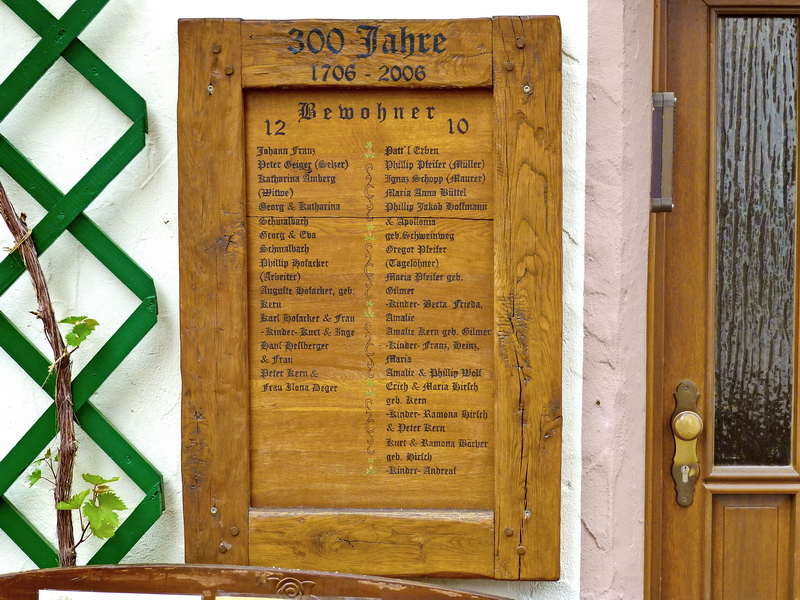 300 Jahre
1706 - 2006
Bewohner
12
Johann Franz
Peter Geiger (Selzer)
Katharina Amberg
(Witwe)
Georg & Katharina
Schmalbach
Georg & Eva
Schmalbach
Phillip Hofacker
(Arbeiter)
Auguste Hofacker, geb.
Kern
Karl Hofacker & Frau
-Kinder- Kurt & Inge
Hans Heffberger
& Frau
Peter Kern &
Frau Ilona Deger
10
Patt'l Erben
Phillip Pfeifer (Müller)
Ignaz Schopp (Maurer)
Maria Anna Büttel
Phillip Jakob Hoffmann
& Apollonia
geb.Schweinweg
Gregor Pfeifer
(Tagelöhner)
Maria Pfeifer geb.
Gilmer
-Kinder- Berta Frieda,
Amalie
Amalie Kern geb. Gilmer
-Kinder- Franz, Heinz,
Maria
Amalie & Phillip Wolf
Erich & Maria Hirsch
geb. Kern
-Kinder- Ramona Hirsch
& Peter Kern
Kurt & Ramona Böcher
geb. Hirsch
-Kinder- Andreas